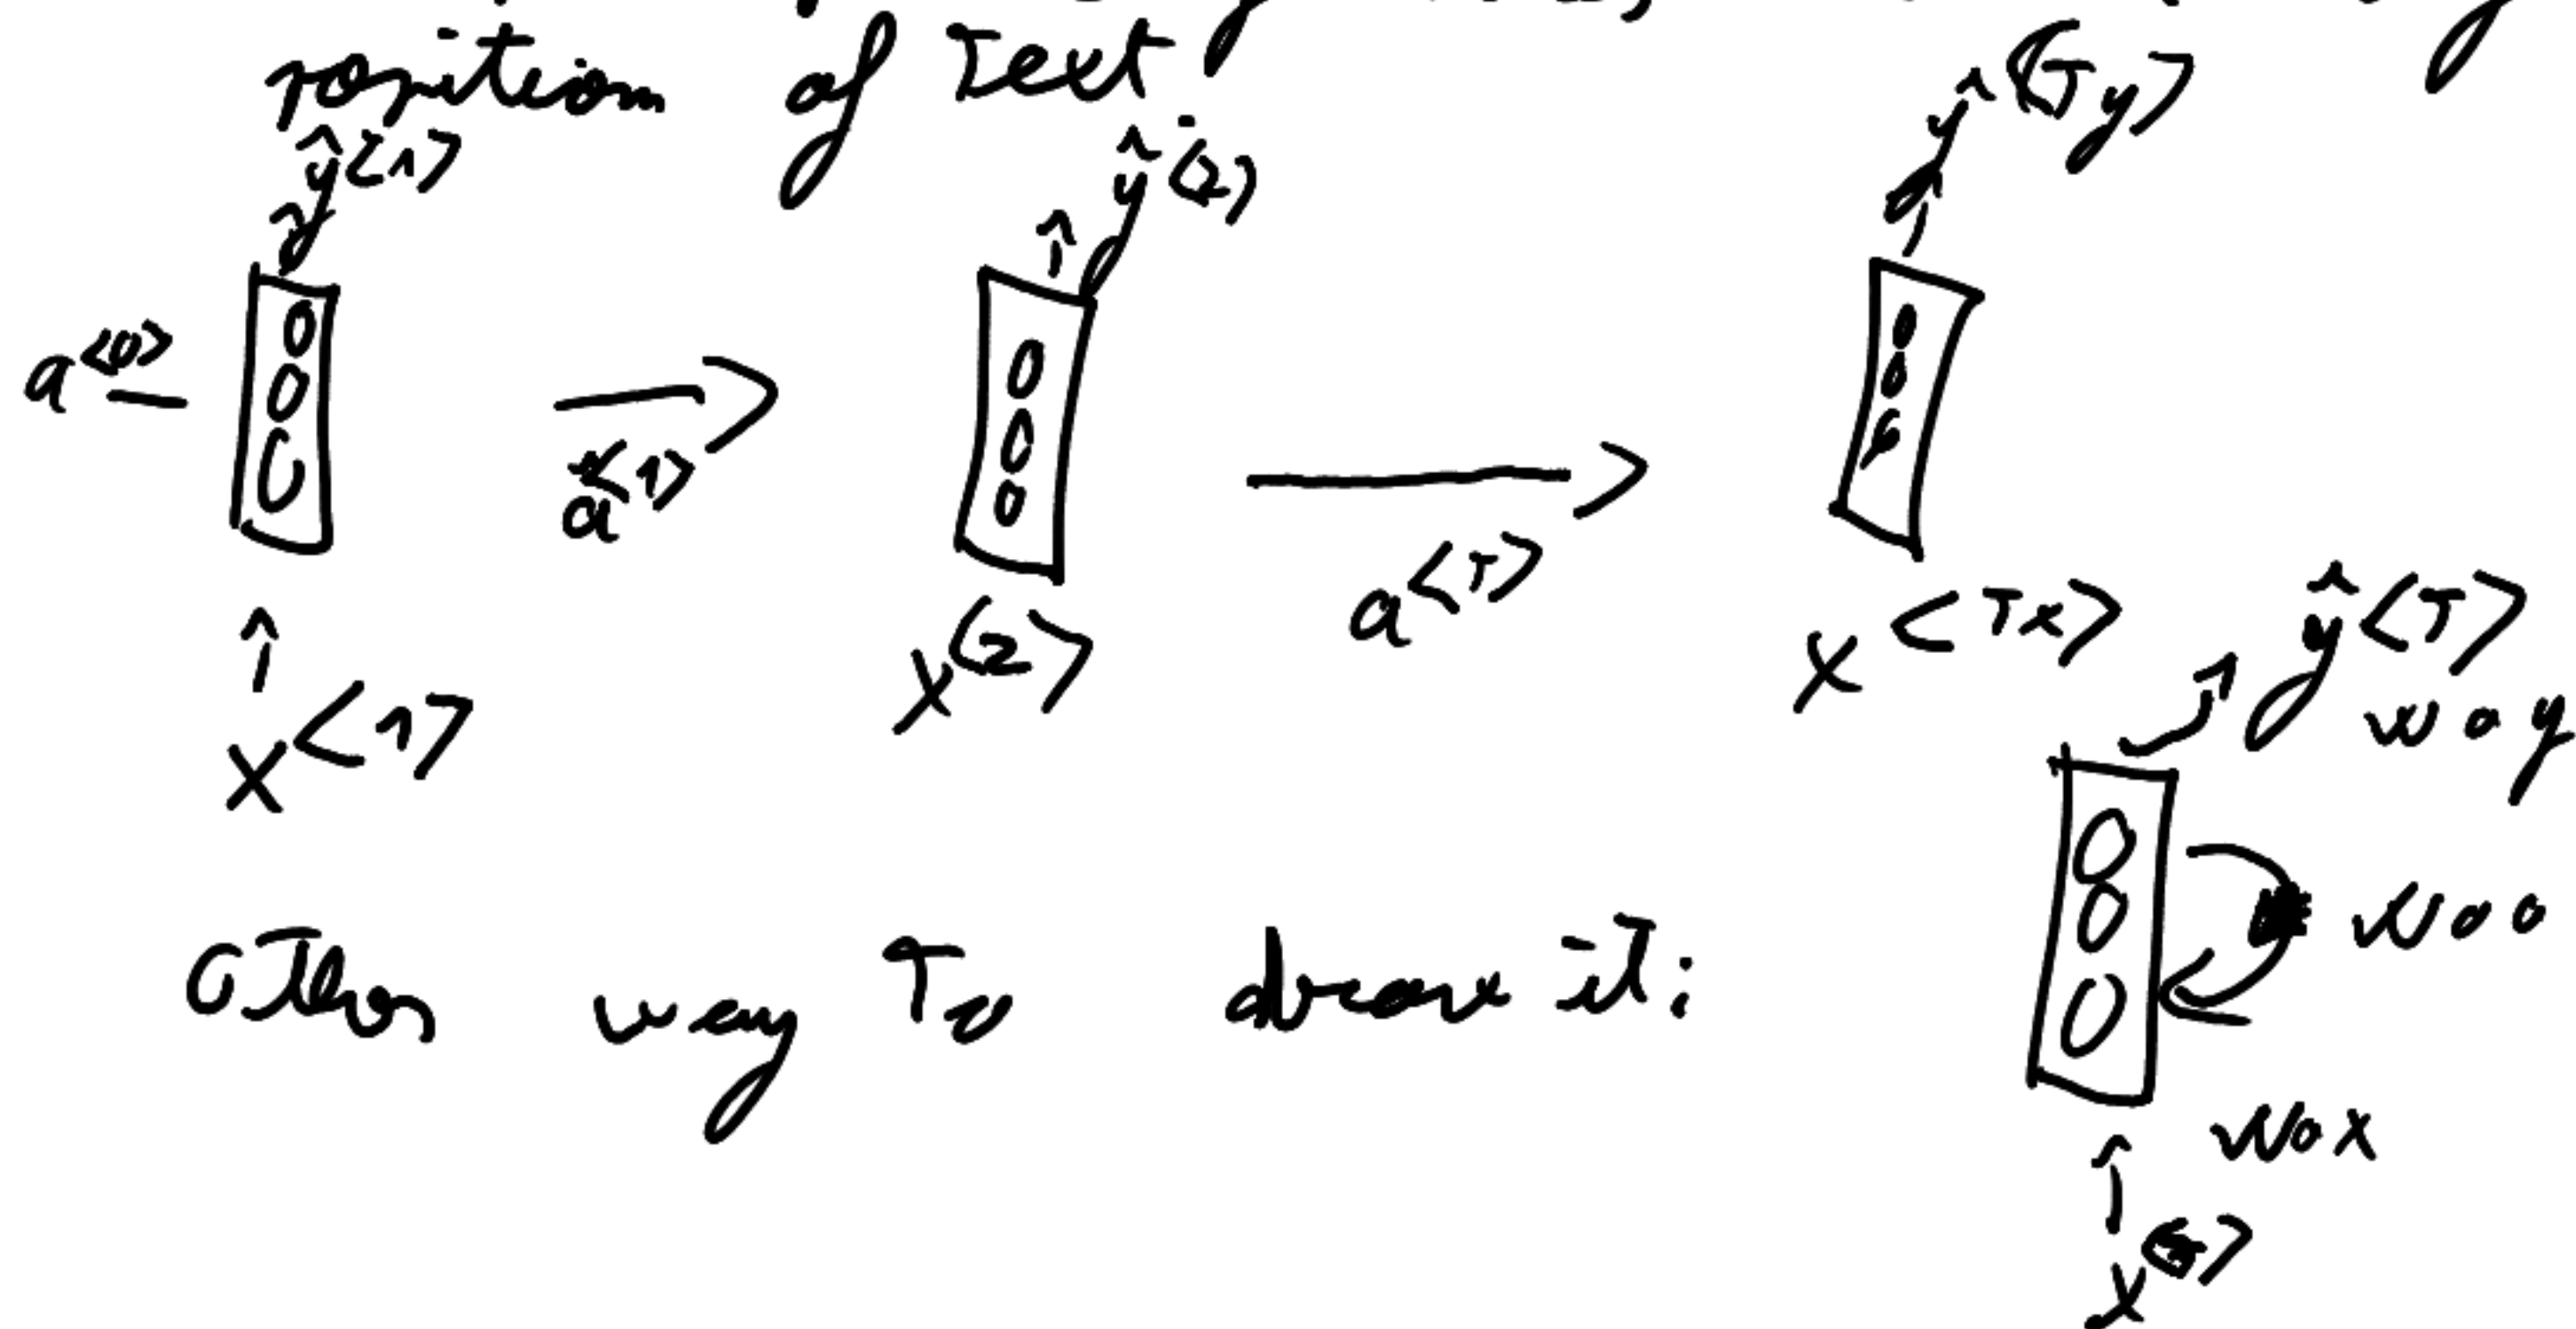 position of Text
ŷ<1> ŷ<2> ŷ<Ty>
a<0> a<1> a<T>
x<1> x<2> x<Tx>
ŷ<T>
way
Other way To draw it: Waa
Wax
x